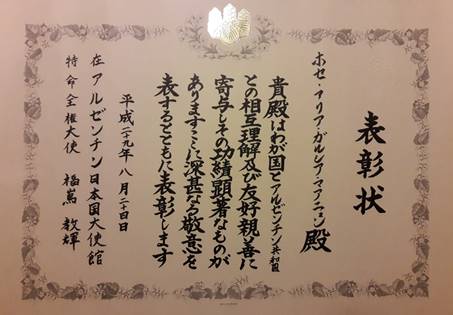 表彰状
ホセ・マリア・ガルシア・マアニョン殿
貴殿はわが国とアルゼンチン共和国
との相互理解及び友好親善に
寄与しその功績顕著なものが
ありますここに深甚なる敬意を
表するとともに表彰します
平成二十九年八月二十四日
在アルゼンチン日本国大使館
特命全権大使 福嶌教輝